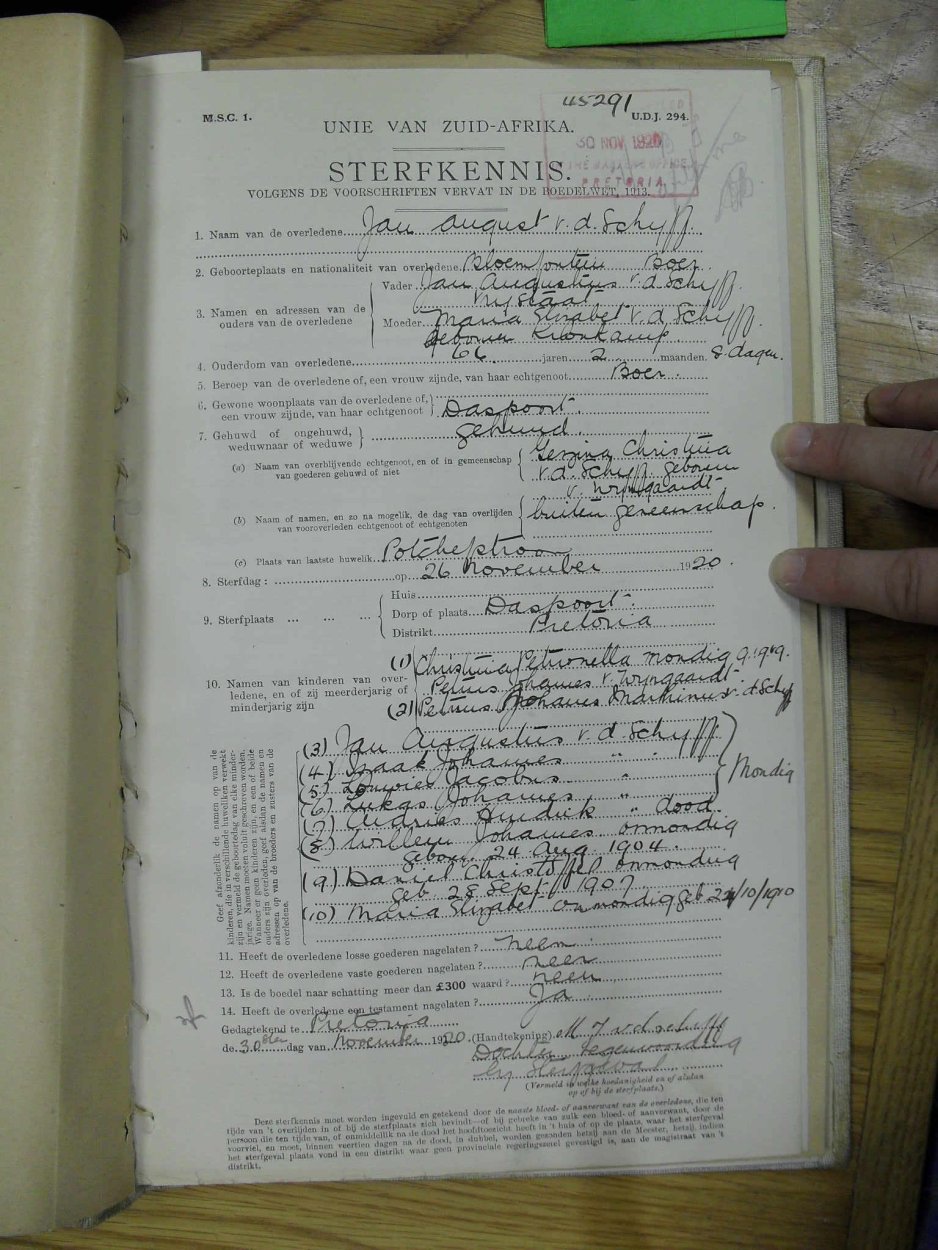 45291
M.S.C. 1.
U.D.J. 294.
UNIE VAN ZUID-AFRIKA.
30 NOV 1920
STERFKENNIS.
PRETORIA
VOLGENS DE VOORSCHRIFTEN VERVAT IN DE BOEDELWET, 1913.
1. Naam van de overledene Jan August v. d. Schyff.
2. Geboorteplaats en nationaliteit van overledene Bloemfontein Boer.
3. Namen en adressen van de ouders van de overledene
Vader Jan Augustius v. d. Schyff.
Vrystaat.
Moeder Maria Elizabet v. d. Schyff.
geboren
4. Ouderdom van overledene 66 jaren 2 maanden. 8 dagen.
5. Beroep van de overledene of, een vrouw zijnde, van haar echtgenoot Boer.
6. Gewone woonplaats van de overledene of,
een vrouw zijnde, van haar echtgenoot Daspoort.
7. Gehuwd of ongehuwd,
weduwnaar of weduwe gehuud.
(a) Naam van overblijvende echtgenoot, en of in gemeenschap
van goederen gehuwd of niet
Gezina Christina
v. d. Schyff. geboren
v. Wyngaardt
(b) Naam of namen, en zo na mogelik, de dag van overlijden
van vooroverleden echtgenoot of echtgenoten
buiten gemeenschap.
(c) Plaats van laatste huwelik. Potchefstroom
8. Sterfdag : op 26 November 1920.
9. Sterfplaats ... ... ...
Huis
Dorp of plaats Daspoort.
Distrikt Pretoria
10. Namen van kinderen van over-
ledene, en of zij meerderjarig of
minderjarig zijn
(1) Christina Petronella mondig
Petrus Johannes v. Wyngaardt.
(2) Petrus Johannes Marthinus v. d. Schyff
Geef afzonderlik de namen op van de
kinderen, die in verschillende huweliken verwekt
zijn en vermeld de geboortedag van elke minder-
jarige. Namen moeten voluit geschreven worden.
Wanneer er geen kinderen zijn, en een of beide
ouders zijn overleden, geef alsdan de namen en
adressen op van de broeders en zusters van de
overledene.
(3) Jan Augustius v. d. Schyff.
(4) Izaak Johannes " "
(5) Louwies Jacobus "
(6) Lukas Johannes "
Mondig
(7) Andries Hendrik " dood.
(8) Willem Johannes onmondig
gebore. 24 Aug. 1904.
(9) Daniel Christoffel onmondig
geb 28 Sept. 1907
(10) Maria Elizabet onmondig geb 24/10/1910
11. Heeft de overledene losse goederen nagelaten ? neen
12. Heeft de overledene vaste goederen nagelaten ? neen
13. Is de boedel naar schatting meer dan £300 waard ? neen
14. Heeft de overledene een testament nagelaten ? Ja
Gedagtekend te Pretoria
de 30sten dag van November 1920. (Handtekening) M J v d Schyff
Dochter tegenwoordig
by Sterfgeval
(Vermeld in welke hoedanigheid en of alsdan
op of bij de sterfplaats.)
Deze sterfkennis moet worden ingevuld en getekend door de naaste bloed- of aanverwant van de overledene, die ten
tijde van 't overlijden in of bij de sterfplaats zich bevindt—of bij gebreke van zulk een bloed- of aanverwant, door de
persoon die ten tijde van, of onmiddellik na de dood het hoofdtoezicht heeft in 't huis of op de plaats, waar het sterfgeval
voorviel, en moet, binnen veertien dagen na de dood, in dubbel, worden gezonden hetzij aan de Meester, hetzij, indien
het sterfgeval plaats vond in een distrikt waar geen provinciale regeringszetel gevestigd is, aan de magistraat van 't
distrikt.